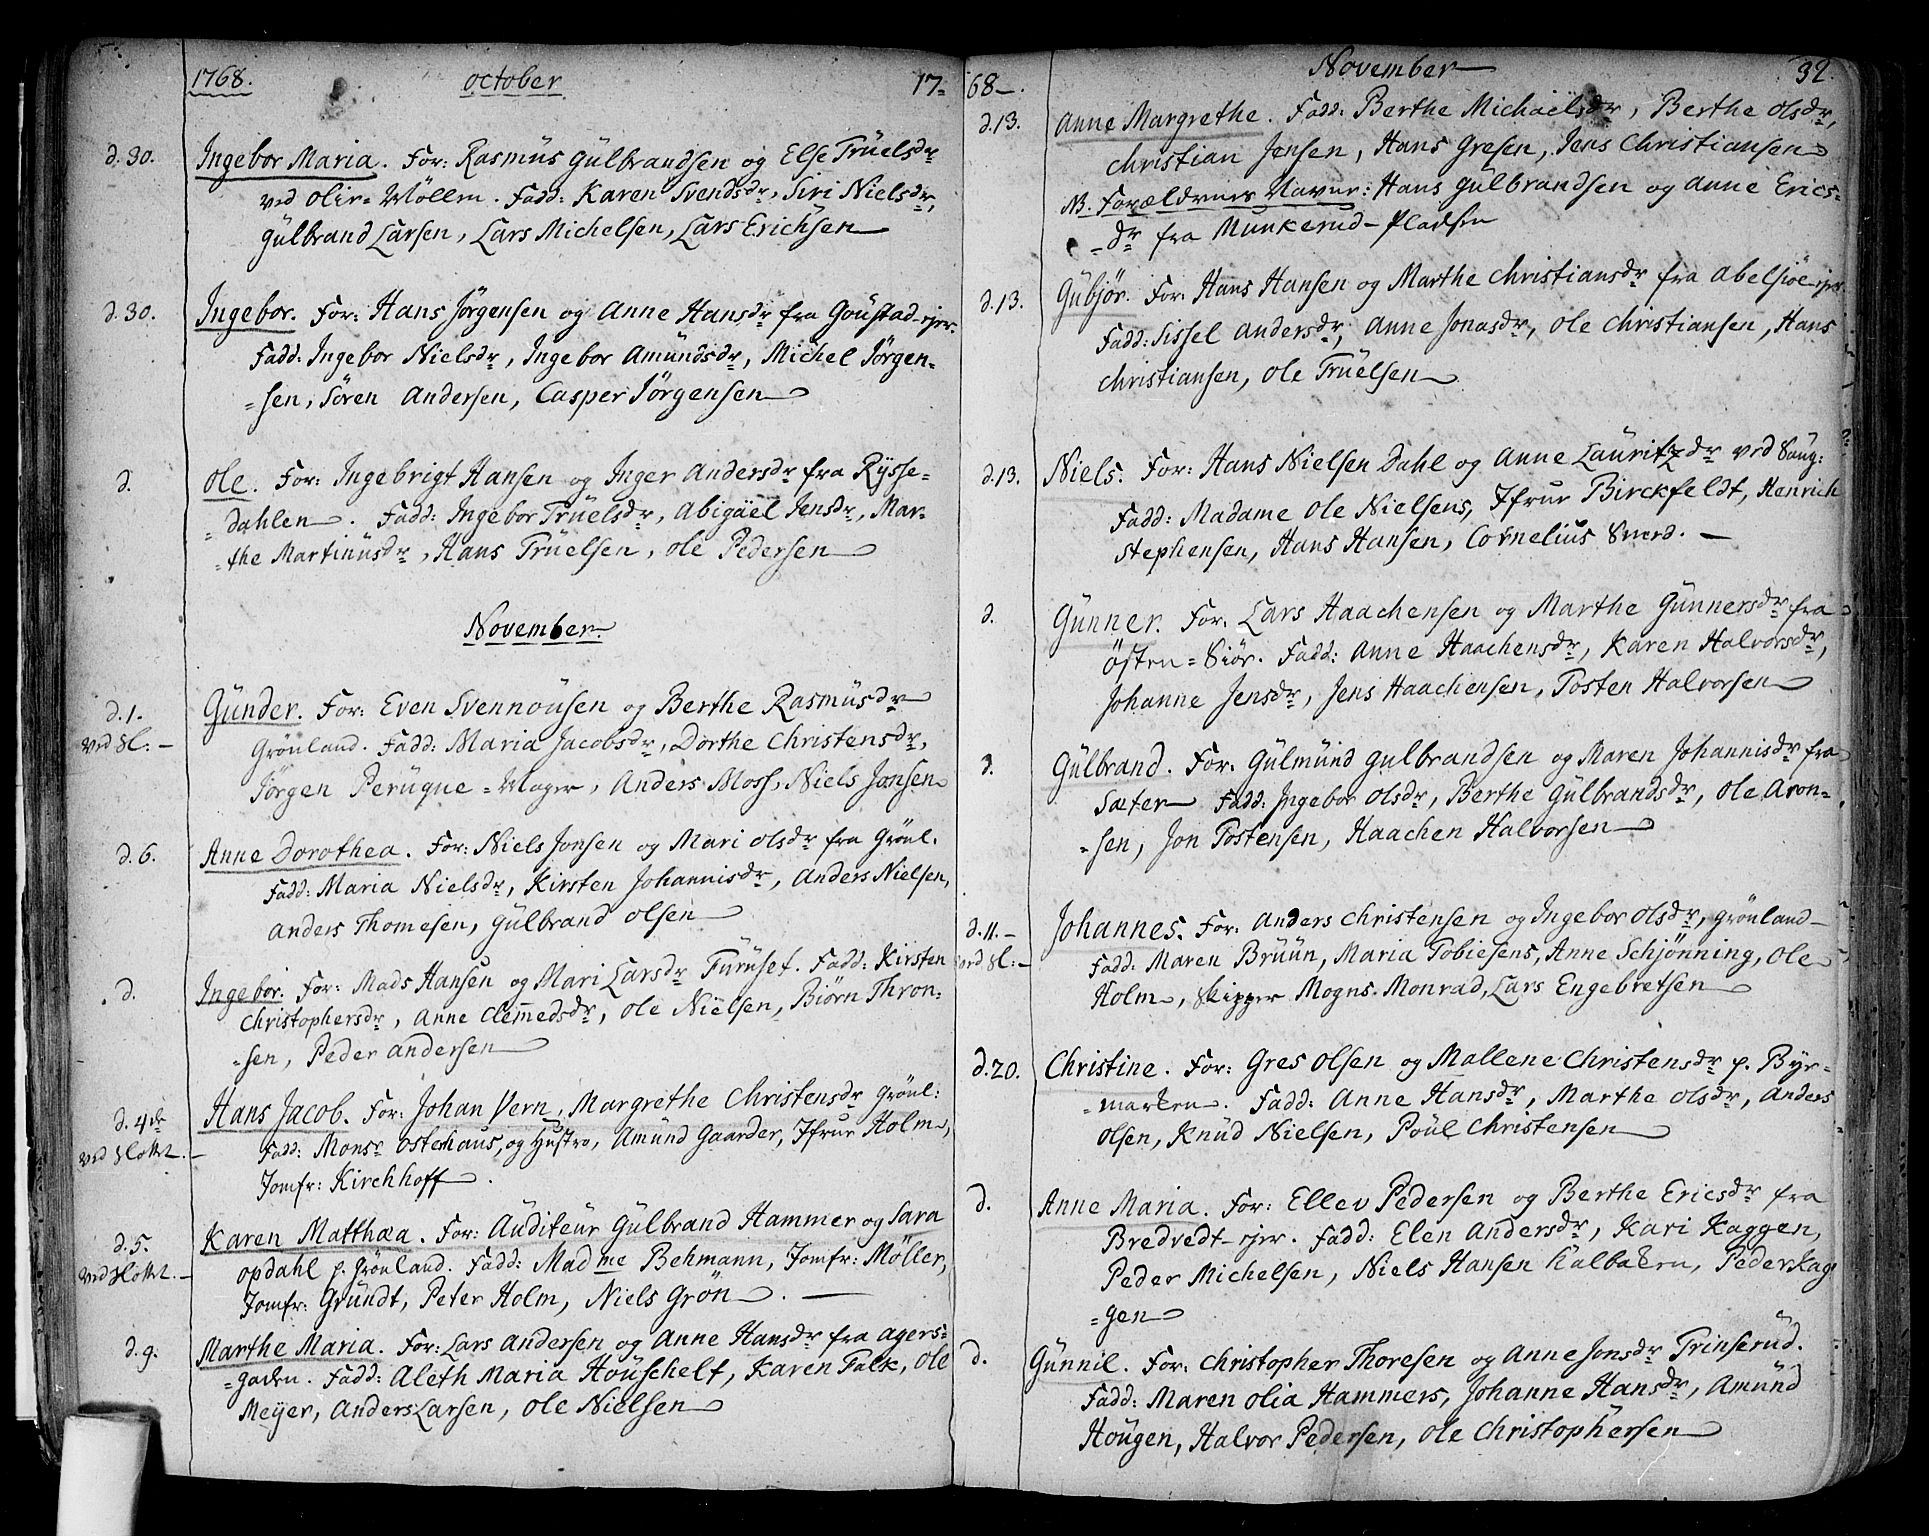 1768. October 17-
d. 30. Ingebor Maria. For: Rasmus Gülbrandsen og Else Trüelsdr
ved Olie-Møllen. Fadd: Karen Svendsdr, Siri Nielsdr,
Gülbrand Larsen, Lars Michelsen, Lars Erichsen
d. 30. Ingebor. For: Hans Jörgensen og Anne Hansdr fra Goustad-ejer.
Fadd: Ingebor Nielsdr, Ingebor Amündsdr, Michel Jörgen-
-sen, Sören Andersen, Casper Jörgensen
d. Ole. For: Ingebrigt Hansen og Inger Andersdr fra Rysse-
-dahlen. Fadd: Ingebor Trüelsdr, Abigäel Jensdr, Mar-
-the Martinüsdr, Hans Trüelsen, Ole Pedersen
November
d. 1. Günder. For: Even Svennöusen og Berthe Rasmüsdr
ved Sl: - Grönland. Fadd: Maria Jacobsdr, Dorthe Christensdr,
Jörgen Perüque-Mager, Anders Moss, Niels Jonsen
d. 6. Anne Dorothea. For: Niels Jonsen og Mari Olsdr fra Grönl.
Fadd: Maria Nielsdr, Kirsten Johannisdr, Anders Nielsen,
Anders Thomesen, Gülbrand Olsen
d. Ingebor. For: Mads Hansen og Mari Larsdr Türüset. Fadd: Kirsten
Christophersdr, Anne Clem̅edsdr, Ole Nielsen, Biörn Thron-
-sen, Peder Andersen
d. 4de Hans Jacob. For: Johan Vern, Margrethe Christensdr Grönl:
ved Slottet. - Fadd: Monsr Ostenhaus, og Hustro, Amünd Gaarder, Jfrur Holm,
Jomfr: Kirchhoff.
d. 5. Karen Matthæa. For: Aüditeür Gülbrand Hammer og Sara
ved Slottet. - Opdahl p. Grönland. Fadd: Madme Behmann, Jomfr: Möller,
Jomfr: Gründt, Peter Holm, Niels Grön.
d. 9. Marthe Maria. For: Lars Andersen og Anne Hansdr fra Agers-
-gaden. Fadd: Aleth Maria Höuschelt, Karen Falk, Ole
Meyer, Anders Larsen, Ole Nielsen
68. November 32.
d. 13. Anne Margrethe. Fadd: Berthe Michaelsdr, Berthe Olsdr,
Christian Jensen, Hans Gresen, Jens Christiansen
NB. Forældrenes Navne: Hans Gülbrandsen og Anne Erics-
-dr fra Munkerud-Pladsen
d. 13. Gübjör. For: Hans Hansen og Marthe Christiansdr fra Abelsjöe-ejer.
Fadd: Sissel Andersdr, Anne Jonasdr, Ole Christiansen, Hans
Christiansen, Ole Trüelsen
d. 13. Niels. For: Hans Nielsen Dahl og Anne Lauritzdr ved Saug:
Fadd: Madame Ole Nielsens, Jfrur Birckfeldt, Henrich
Stephensen, Hans Hansen, Cornelius Sverd. -
d. Günner. For: Lars Haachensen og Marthe Günnersdr fra
Østen-Siör. Fadd: Anne Haachensdr, Karen Halvorsdr,
Johanne Jensdr, Jens Haachensen, Tosten Halvorsen
d. Gülbrand. For: Gülmünd Gulbrandsen og Maren Johannisdr fra
Sæter Fadd: Ingebor Olsdr, Berthe Gülbrandsdr, Ole Aron-
-sen, Jon Tostensen, Haachen Halvorsen
d. 11. - Johannes. For: Anders Christensen og Ingebor Olsdr, Grönland
ved Sl: - Fadd: Maren Brüün, Maria Tobiesens, Anne Schjönning, Ole
Holm, Skipper Mogns. Monrad, Lars Engebretsen
d. 20. Christine. For: Gres Olsen og Mallene Christensdr p. Byr-
-marken. Fadd: Anne Hansdr, Marthe Olsdr, Anders
Olsen, Knüd Nielsen, Poül Christensen
d. Anne Maria. For: Ellev Pedersen og Berthe Ericsdr fra
Bredvedt-ejer. Fadd: Elen Andersdr, Kari Kaggen,
Peder Michelsen, Niels Hansen Kalbaken, Peder Kag
-gen
d. Günnil. For: Christopher Thoresen og Anne Jonsdr Trinserud.
Fadd: Maren Olia Hammers, Johanne Hansdr, Amünd
Höugen, Halvor Pedersen, Ole Christophersen